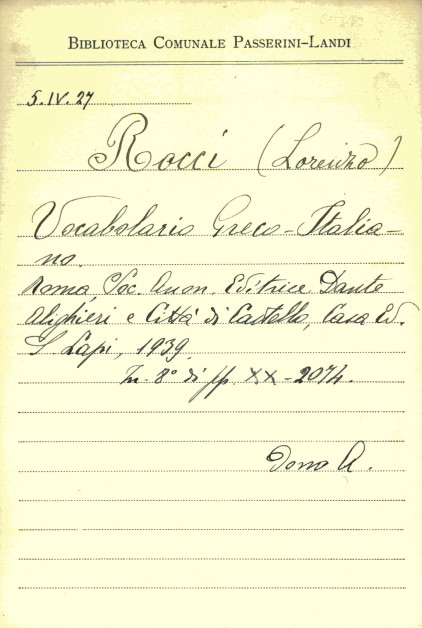 BIBLIOTECA COMUNALE PASSERINI-LANDI
5.IV.27
Rocci (Lorenzo)
Vocabolario Greco-Italia-
no.
Roma, Soc. Anon. Editrice Dante
Alighieri e Città di Castello, Casa Ed.
S. Lapi, 1939.
In-8° di pp. XX-2074.
Dono A.